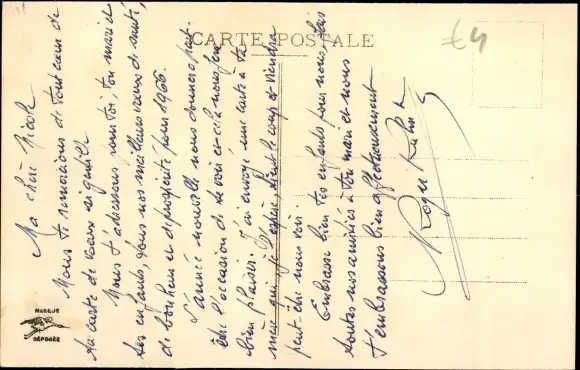 CARTE POSTALE
£4
Ma chère Nicole
Nous te remercions de tout cœur de
ta carte de vœux si gentille
Nous t'adressons pour toi, ton mari et
tes enfants, tous nos meilleurs vœux de santé,
de bonheur et de prospérité pour 1966.
L'année nouvelle nous donnera peut-
être l'occasion de te voir et cela nous fera
bien plaisir. J'ai envoyé une carte à ta
mère qui, je l'espère, tient le coup et viendra
peut-être nous voir.
Embrasse bien tes enfants pour nous, fais
toutes nos amitiés à ton mari et nous
t'embrassons bien affectueusement
Roger
MARQUE
DÉPOSÉE